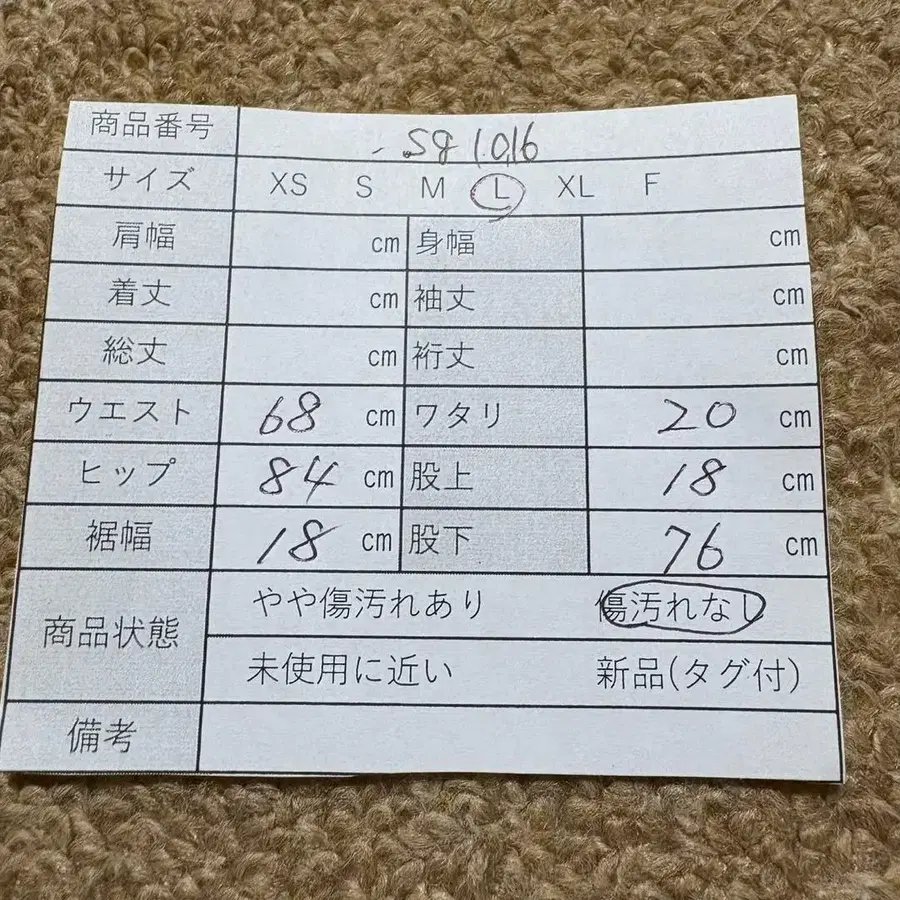 商品番号 sg 1016
サイズ XS S M L XL F
肩幅 cm 身幅 cm
着丈 cm 袖丈 cm
総丈 cm 裄丈 cm
ウエスト 68 cm ワタリ 20 cm
ヒップ 84 cm 股上 18 cm
裾幅 18 cm 股下 76 cm
商品状態 やや傷汚れあり 傷汚れなし
未使用に近い 新品(タグ付)
備考